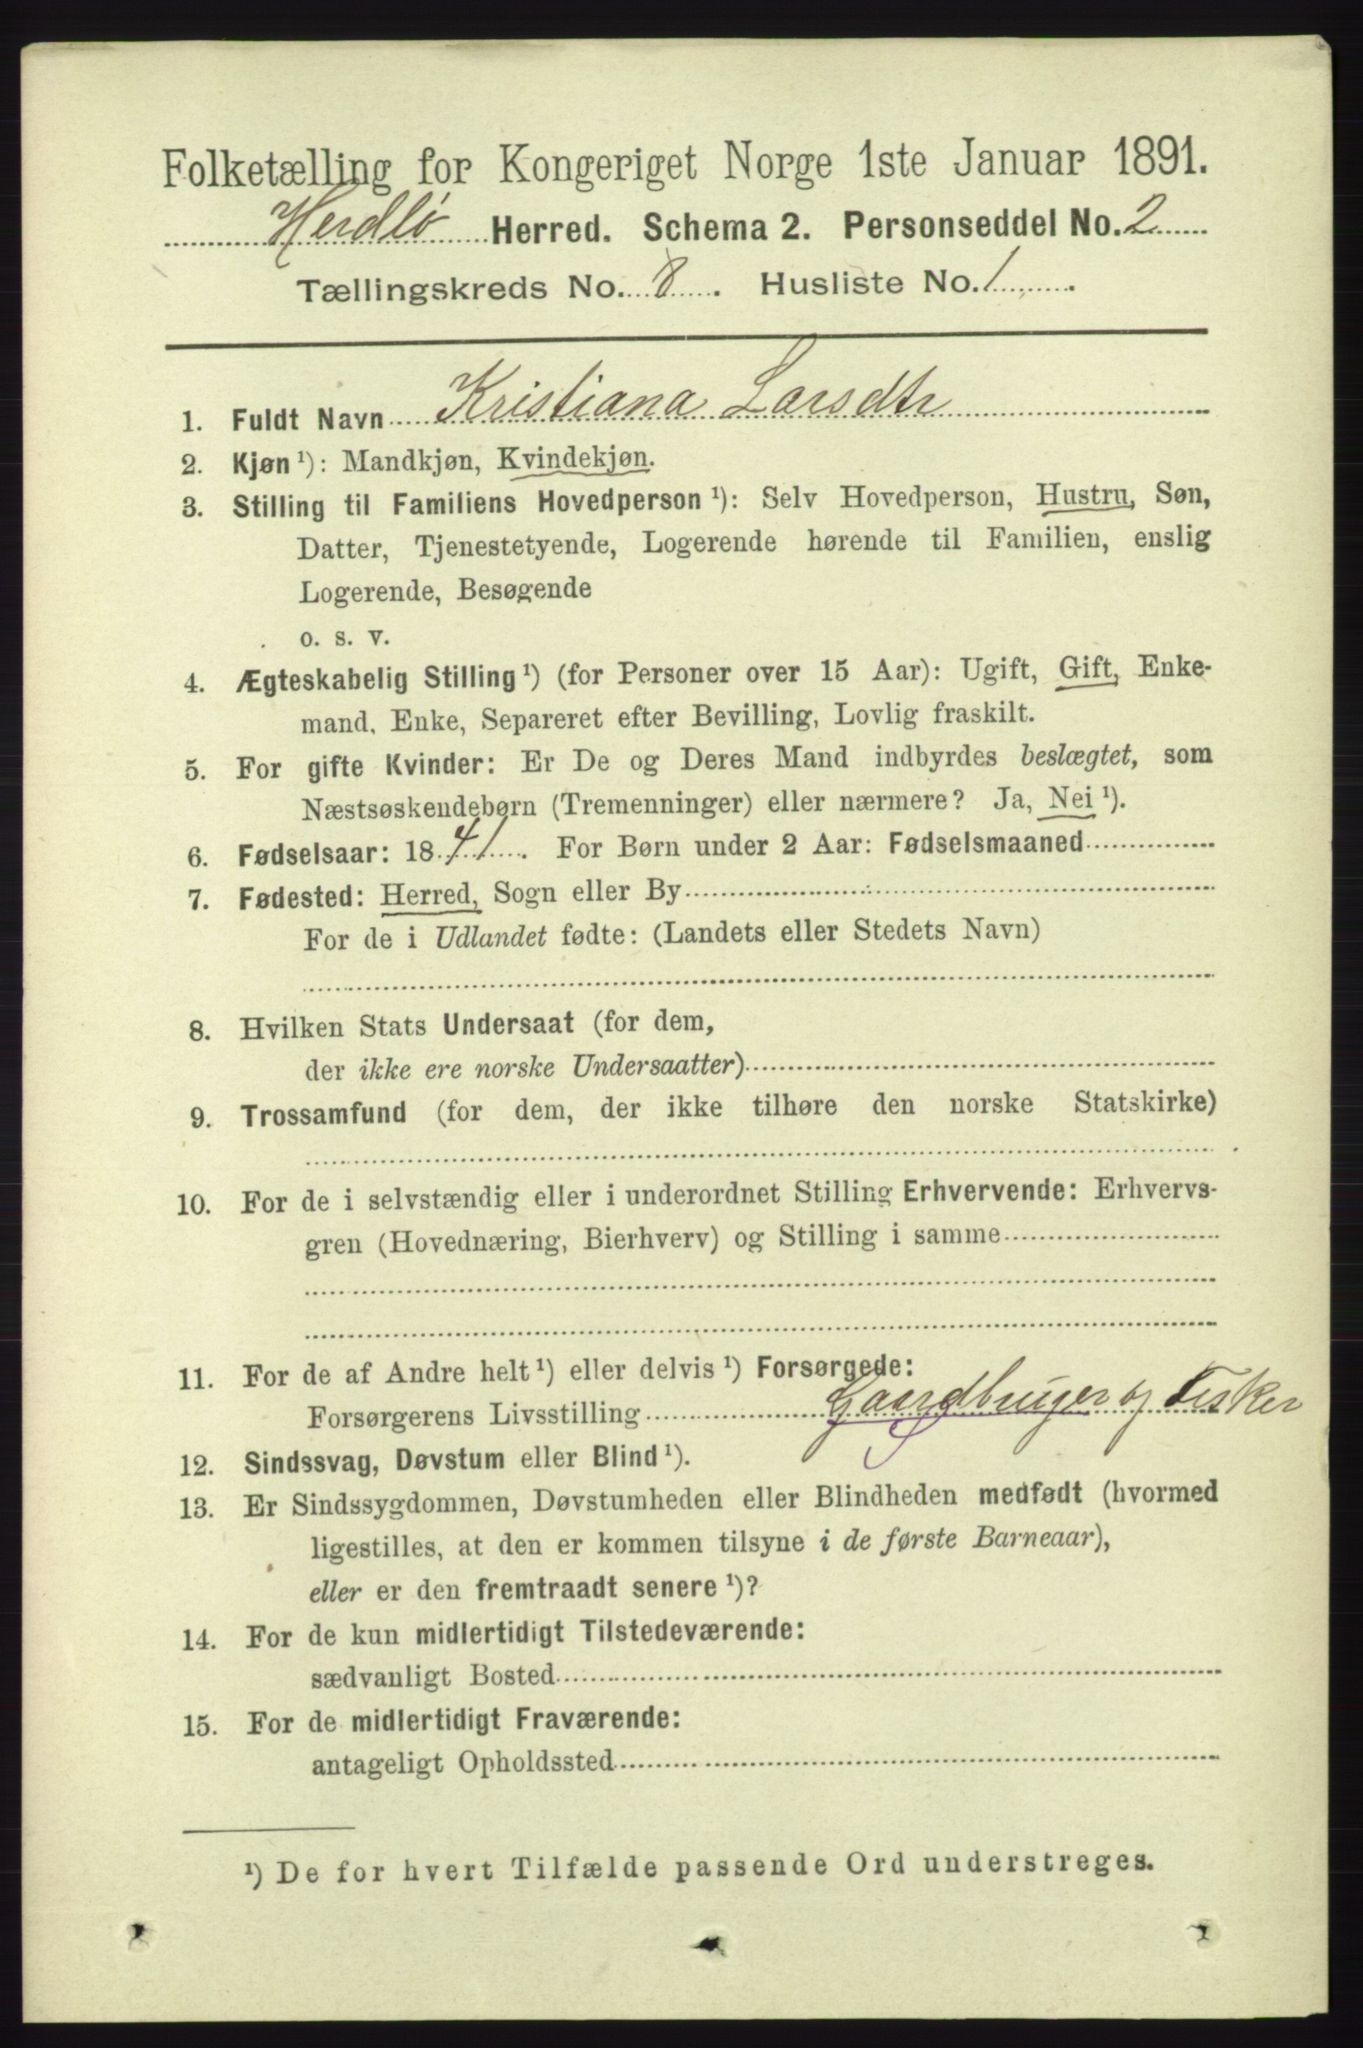 Folketælling for Kongeriget Norge 1ste Januar 1891.
Herdlø Herred. Schema 2. Personseddel No. 2
Tællingskreds No. 8. Husliste No. 1.
1. Fuldt Navn Kristiana Larsdtr
2. Kjøn ¹): Mandkjøn, Kvindekjøn.
3. Stilling til Familiens Hovedperson ¹): Selv Hovedperson, Hustru, Søn,
Datter, Tjenestetyende, Logerende hørende til Familien, enslig
Logerende, Besøgende
o. s. v.
4. Ægteskabelig Stilling ¹) (for Personer over 15 Aar): Ugift, Gift, Enke-
mand, Enke, Separeret efter Bevilling, Lovlig fraskilt.
5. For gifte Kvinder: Er De og Deres Mand indbyrdes beslægtet, som
Næstsøskendebørn (Tremenninger) eller nærmere? Ja, Nei ¹).
6. Fødselsaar: 1841. For Børn under 2 Aar: Fødselsmaaned
7. Fødested: Herred, Sogn eller By
For de i Udlandet fødte: (Landets eller Stedets Navn)
8. Hvilken Stats Undersaat (for dem,
der ikke ere norske Undersaatter)
9. Trossamfund (for dem, der ikke tilhøre den norske Statskirke)
10. For de i selvstændig eller i underordnet Stilling Erhvervende: Erhvervs-
gren (Hovednæring, Bierhverv) og Stilling i samme
11. For de af Andre helt ¹) eller delvis ¹) Forsørgede:
Forsørgerens Livsstilling Gaardbruger og Fisker
S
12. Sindssvag, Døvstum eller Blind ¹).
13. Er Sindssygdommen, Døvstumheden eller Blindheden medfødt (hvormed
ligestilles, at den er kommen tilsyne i de første Barneaar),
eller er den fremtraadt senere ¹)?
14. For de kun midlertidigt Tilstedeværende:
sædvanligt Bosted
15. For de midlertidigt Fraværende:
antageligt Opholdssted
¹) De for hvert Tilfælde passende Ord understreges.